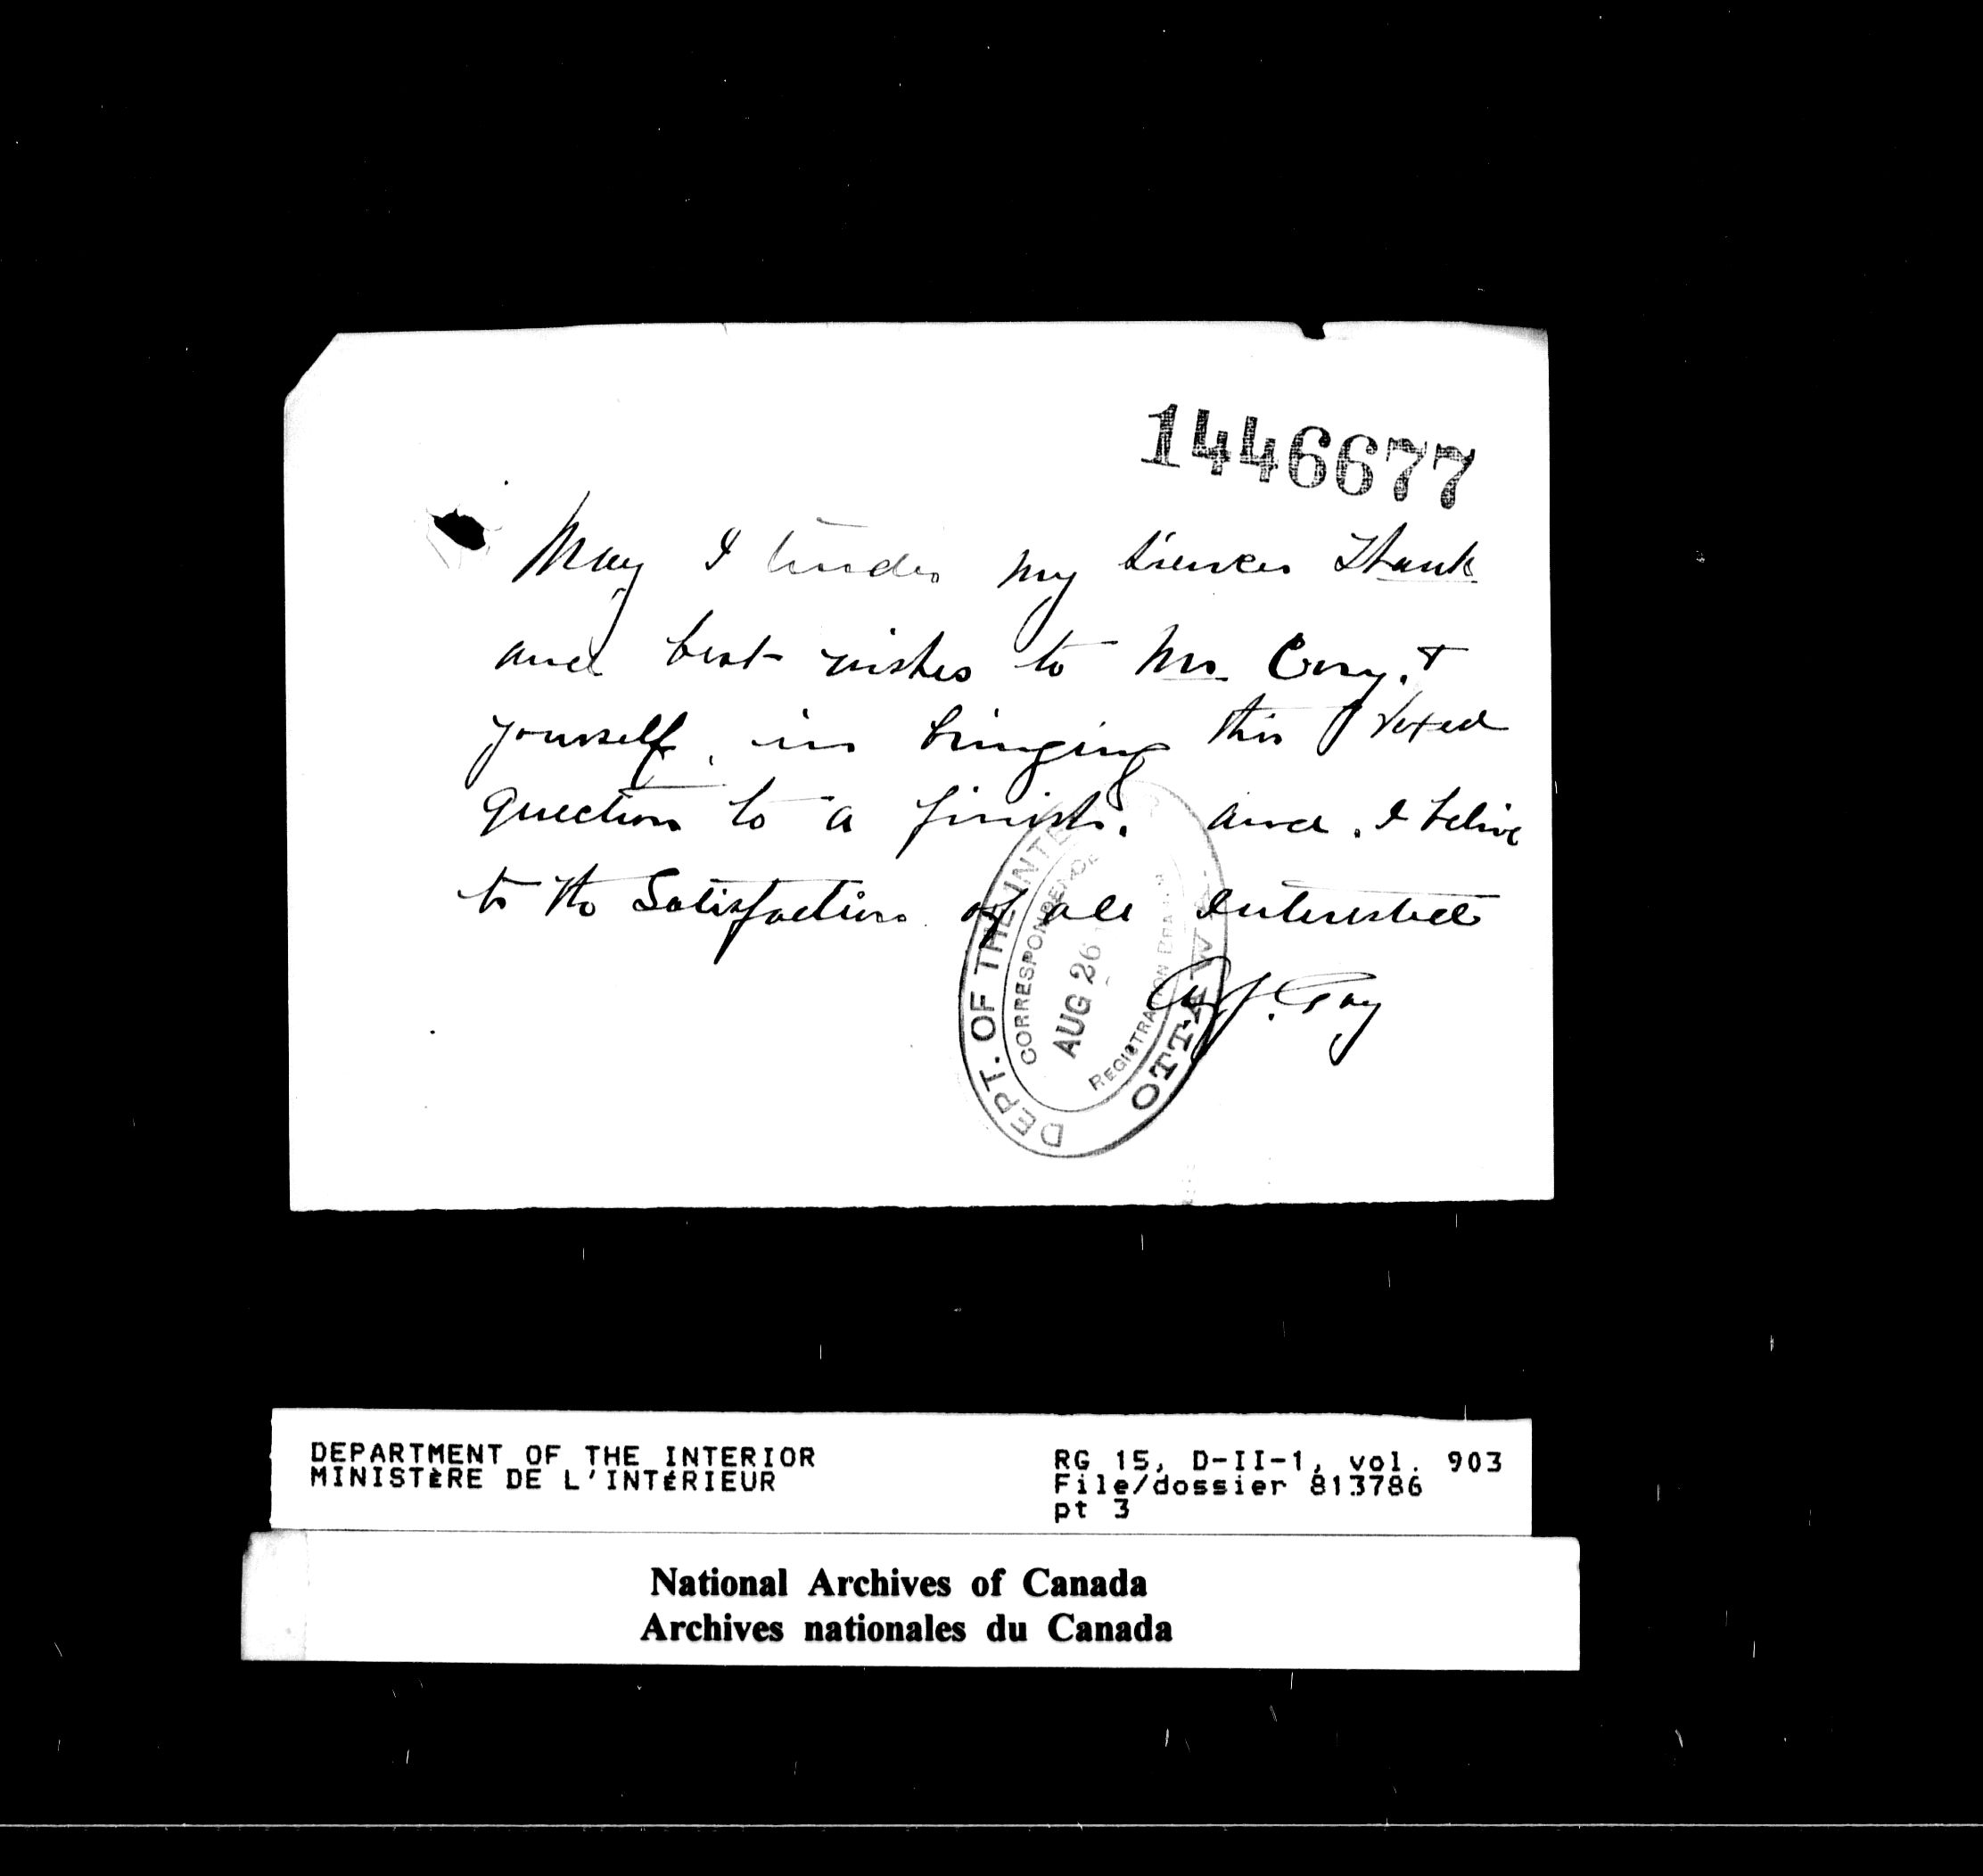 1446677
May I tender my sincere Thank
and best wishes to Mr. Cory. &
yourself, in bringing this vexed
question to a finish. and. I belive
to the Satisfaction of all interested
DEPT. OF THE INTE
CORRESPONDENCE
AUG 26
REGISTRATION BRANCH
OTTAWA
DEPARTMENT OF THE INTERIOR
MINISTÈRE DE L'INTÉRIEUR
RG 15, D-II-1, vol. 903
File/dossier 813786
pt 3
National Archives of Canada
Archives nationales du Canada